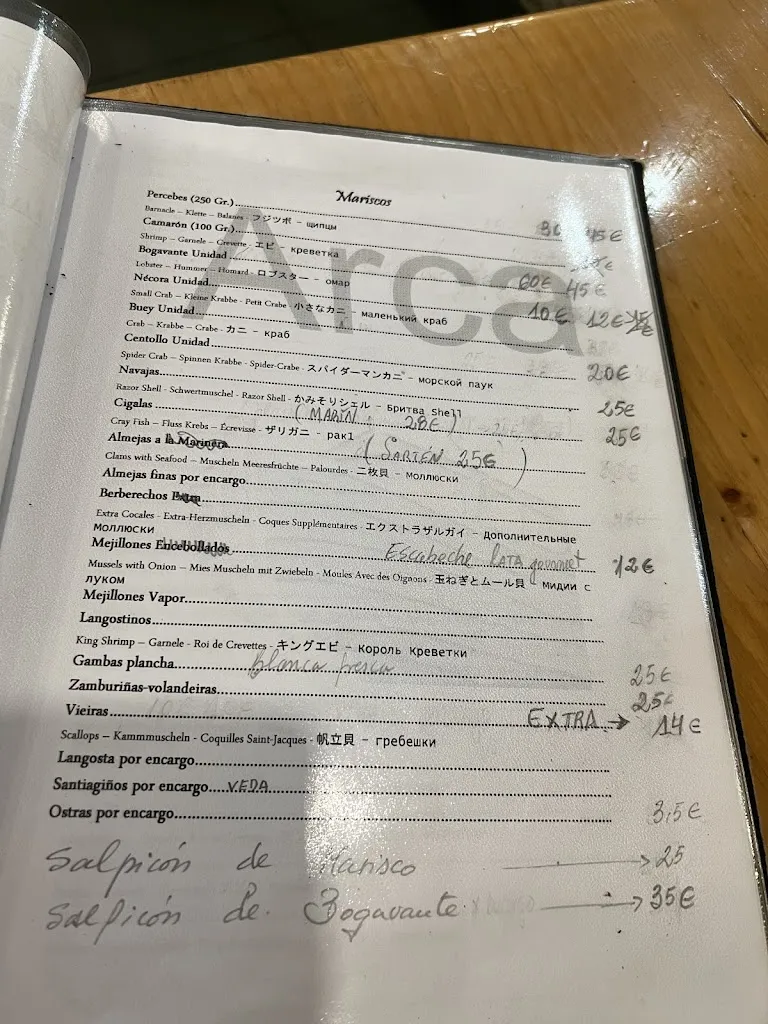 Mariscos
Percebes (250 Gr.) 45€
Barnacle – Klette – Balanes - フジツボ – щипцы
Camarón (100 Gr.)
Shrimp – Garnele - Crevette - エビ – креветка
Bogavante Unidad 60€ 45€
Lobster – Hummer – Homard - ロブスター – омар
Nécora Unidad 10€ 12€ 15€
Small Crab – Kleine Krabbe - Petit Crabe - 小さなカニ – маленький краб
Buey Unidad 20€
Crab – Krabbe – Crabe - カニ – краб
Centollo Unidad 25€
Spider Crab – Spinnen Krabbe - Spider-Crabe - スパイダーマンカニ - морской паук
Navajas 25€
Razor Shell - Schwertmuschel - Razor Shell - かみそりシェル – Бритва Shell
Cigalas (MARÍN: 28€)
Cray Fish – Fluss Krebs – Écrevisse - ザリガニ – рак1
Almejas a la Marinera (SARTÉN 25€)
Clams with Seafood – Muscheln Meeresfrüchte – Palourdes - 二枚貝 – моллюски
Almejas finas por encargo
Berberechos
Extra Cocales - Extra-Herzmuscheln - Coques Supplémentaires - エクストラザルガイ – дополнительные
моллюски
Mejillones Encebollados Escabeche LATA gourmet 12€
Mussels with Onion – Mies Muscheln mit Zwiebeln - Moules Avec des Oignons - 玉ねぎとムール貝 – мидии с
луком
Mejillones Vapor
Langostinos
King Shrimp – Garnele - Roi de Crevettes - キングエビ – король Креветки
Gambas plancha blanca fresca 25€
Zamburiñas-volandeiras 25€
Vieiras EXTRA → 14€
Scallops – Kammmuscheln - Coquilles Saint-Jacques - 帆立貝 – гребешки
Langosta por encargo
Santiagiños por encargo VEDA
Ostras por encargo 3,5€
Salpicón de Marisco → 25
Salpicón de Bogavante → 35€
Arca